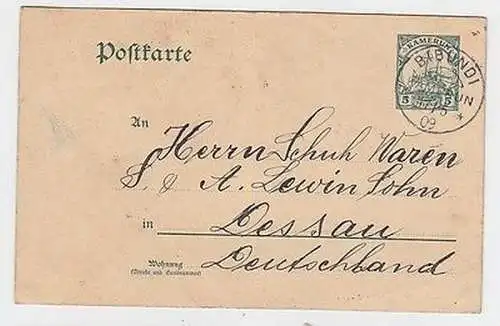 KAMERUN
Postkarte
BIBUNDI
5 5
09
An
Herrn Schuh Waren
S. & A. Lewin Sohn
in Dessau
Wohnung
(Straße und Hausnummer)
Deutschland